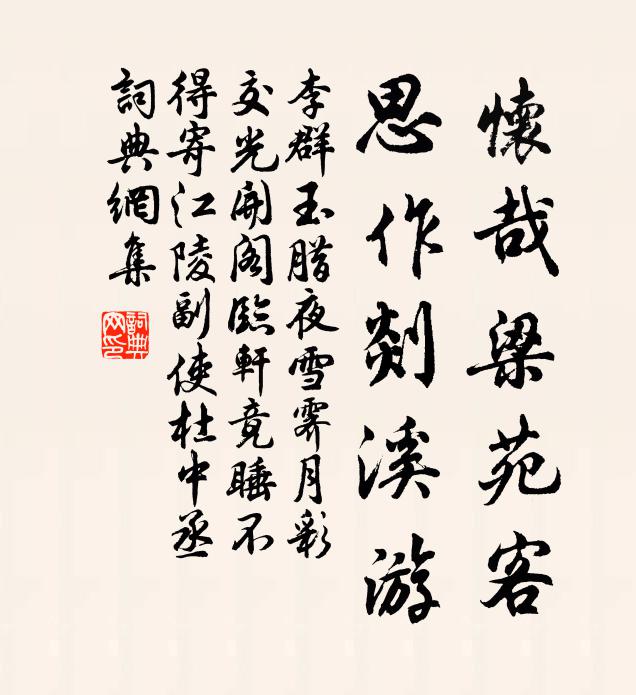 懷哉梁苑客
思作剡溪游
李群玉腊夜雪霽月彩
交光開閣臨軒竟睡不
得寄江陵副使杜中丞
詞典網集
詞典
网印